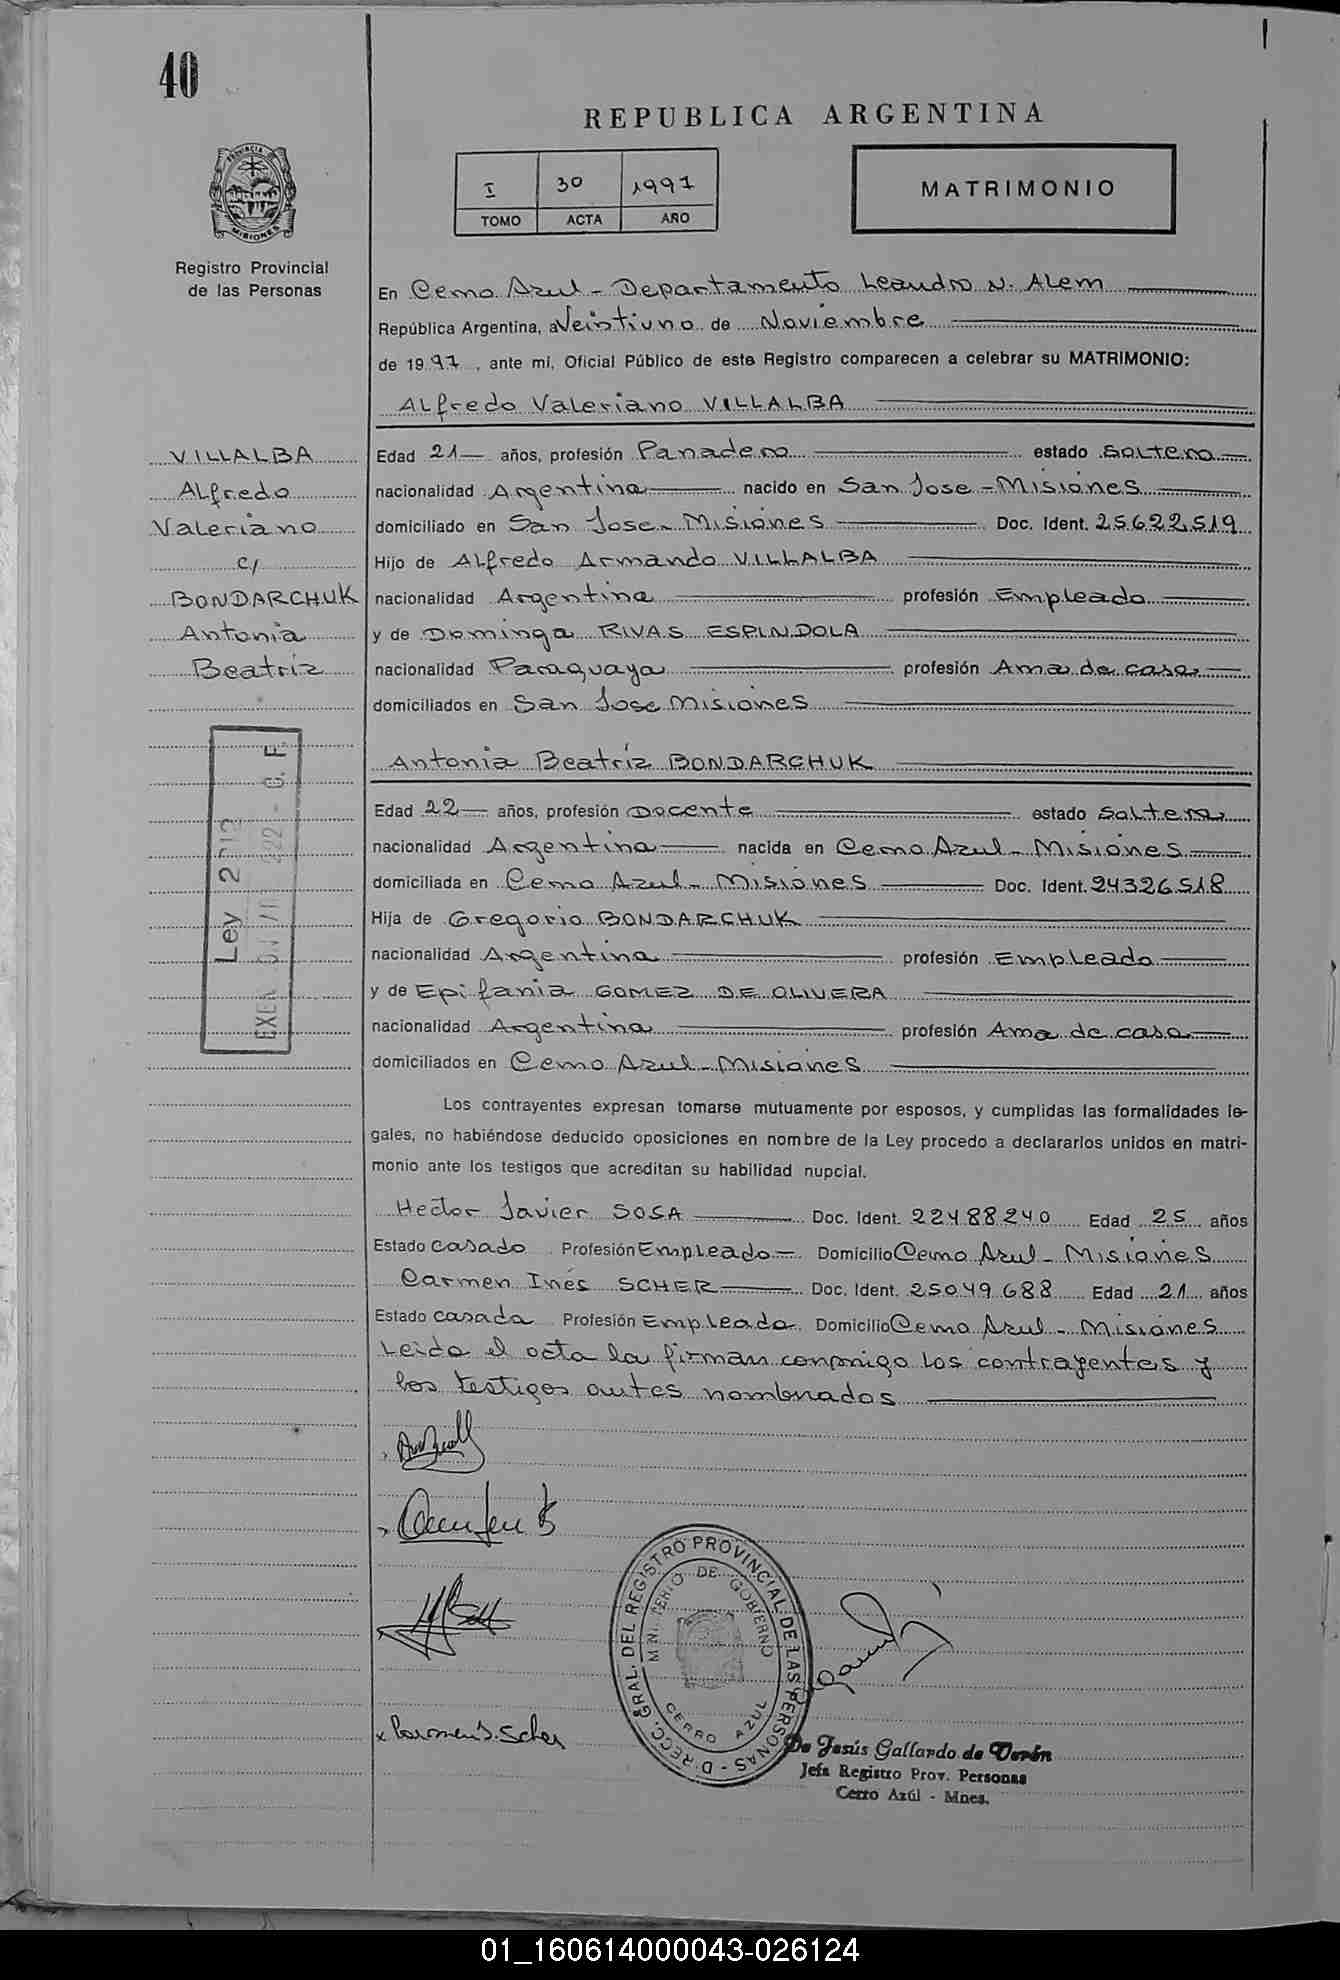 40
REPUBLICA ARGENTINA
I 30 1997
TOMO ACTA AÑO
MATRIMONIO
PROVINCIA DE
MISIONES
Registro Provincial
de las Personas
En Cerro Azul - Departamento Leandro N. Alem
República Argentina, a Veintiuno de Noviembre
de 1997, ante mi, Oficial Público de este Registro comparecen a celebrar su MATRIMONIO:
Alfredo Valeriano VILLALBA
VILLALBA
Alfredo
Valeriano
c/
BONDARCHUK
Antonia
Beatríz
Edad 21 años, profesión Panadero estado soltero
nacionalidad Argentina nacido en San Jose - Misiones
domiciliado en San Jose - Misiones Doc. Ident. 25622519
Hijo de Alfredo Armando VILLALBA
nacionalidad Argentina profesión Empleado
y de Dominga RIVAS ESPINDOLA
nacionalidad Paraguaya profesión Ama de casa
domiciliados en San Jose Misiones
Antonia Beatríz BONDARCHUK
Edad 22 años, profesión Docente estado soltera
nacionalidad Argentina nacida en Cerro Azul - Misiones
domiciliada en Cerro Azul - Misiones Doc. Ident. 24326518
Hija de Gregorio BONDARCHUK
nacionalidad Argentina profesión Empleado
y de Epifania GOMEZ DE OLIVERA
nacionalidad Argentina profesión Ama de casa
domiciliados en Cerro Azul - Misiones
Ley 2
G. F.
Los contrayentes expresan tomarse mutuamente por esposos, y cumplidas las formalidades le-
gales, no habiéndose deducido oposiciones en nombre de la Ley procedo a declararlos unidos en matri-
monio ante los testigos que acreditan su habilidad nupcial.
Hector Javier SOSA Doc. Ident. 22488240 Edad 25 años
Estado casado Profesión Empleado Domicilio Cerro Azul - Misiones
Carmen Inés SCHER Doc. Ident. 25049688 Edad 21 años
Estado casada Profesión Empleada Domicilio Cerro Azul - Misiones
Leida el acta la firman conmigo los contrayentes y
los testigos antes nombrados
Carmen I. Scher
DIRECC. GRAL. DEL REGISTRO PROVINCIAL DE LAS PERSONAS
MINISTERIO DE GOBIERNO
CERRO AZUL
De Jesús Gallardo de Verón
Jefa Registro Prov. Personas
Cerro Azúl - Mnes.
01_160614000043-026124